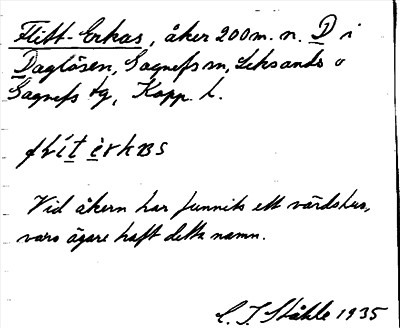 Flitt-Erkas, åker 200 m. n. D i
Daglösen, Gagnefs sn, Leksands o
Gagnefs tg, Kopp. l.
Vid åkern har funnits ett värdshus,
vars ägare haft detta namn.
C. I. Ståhle 1935